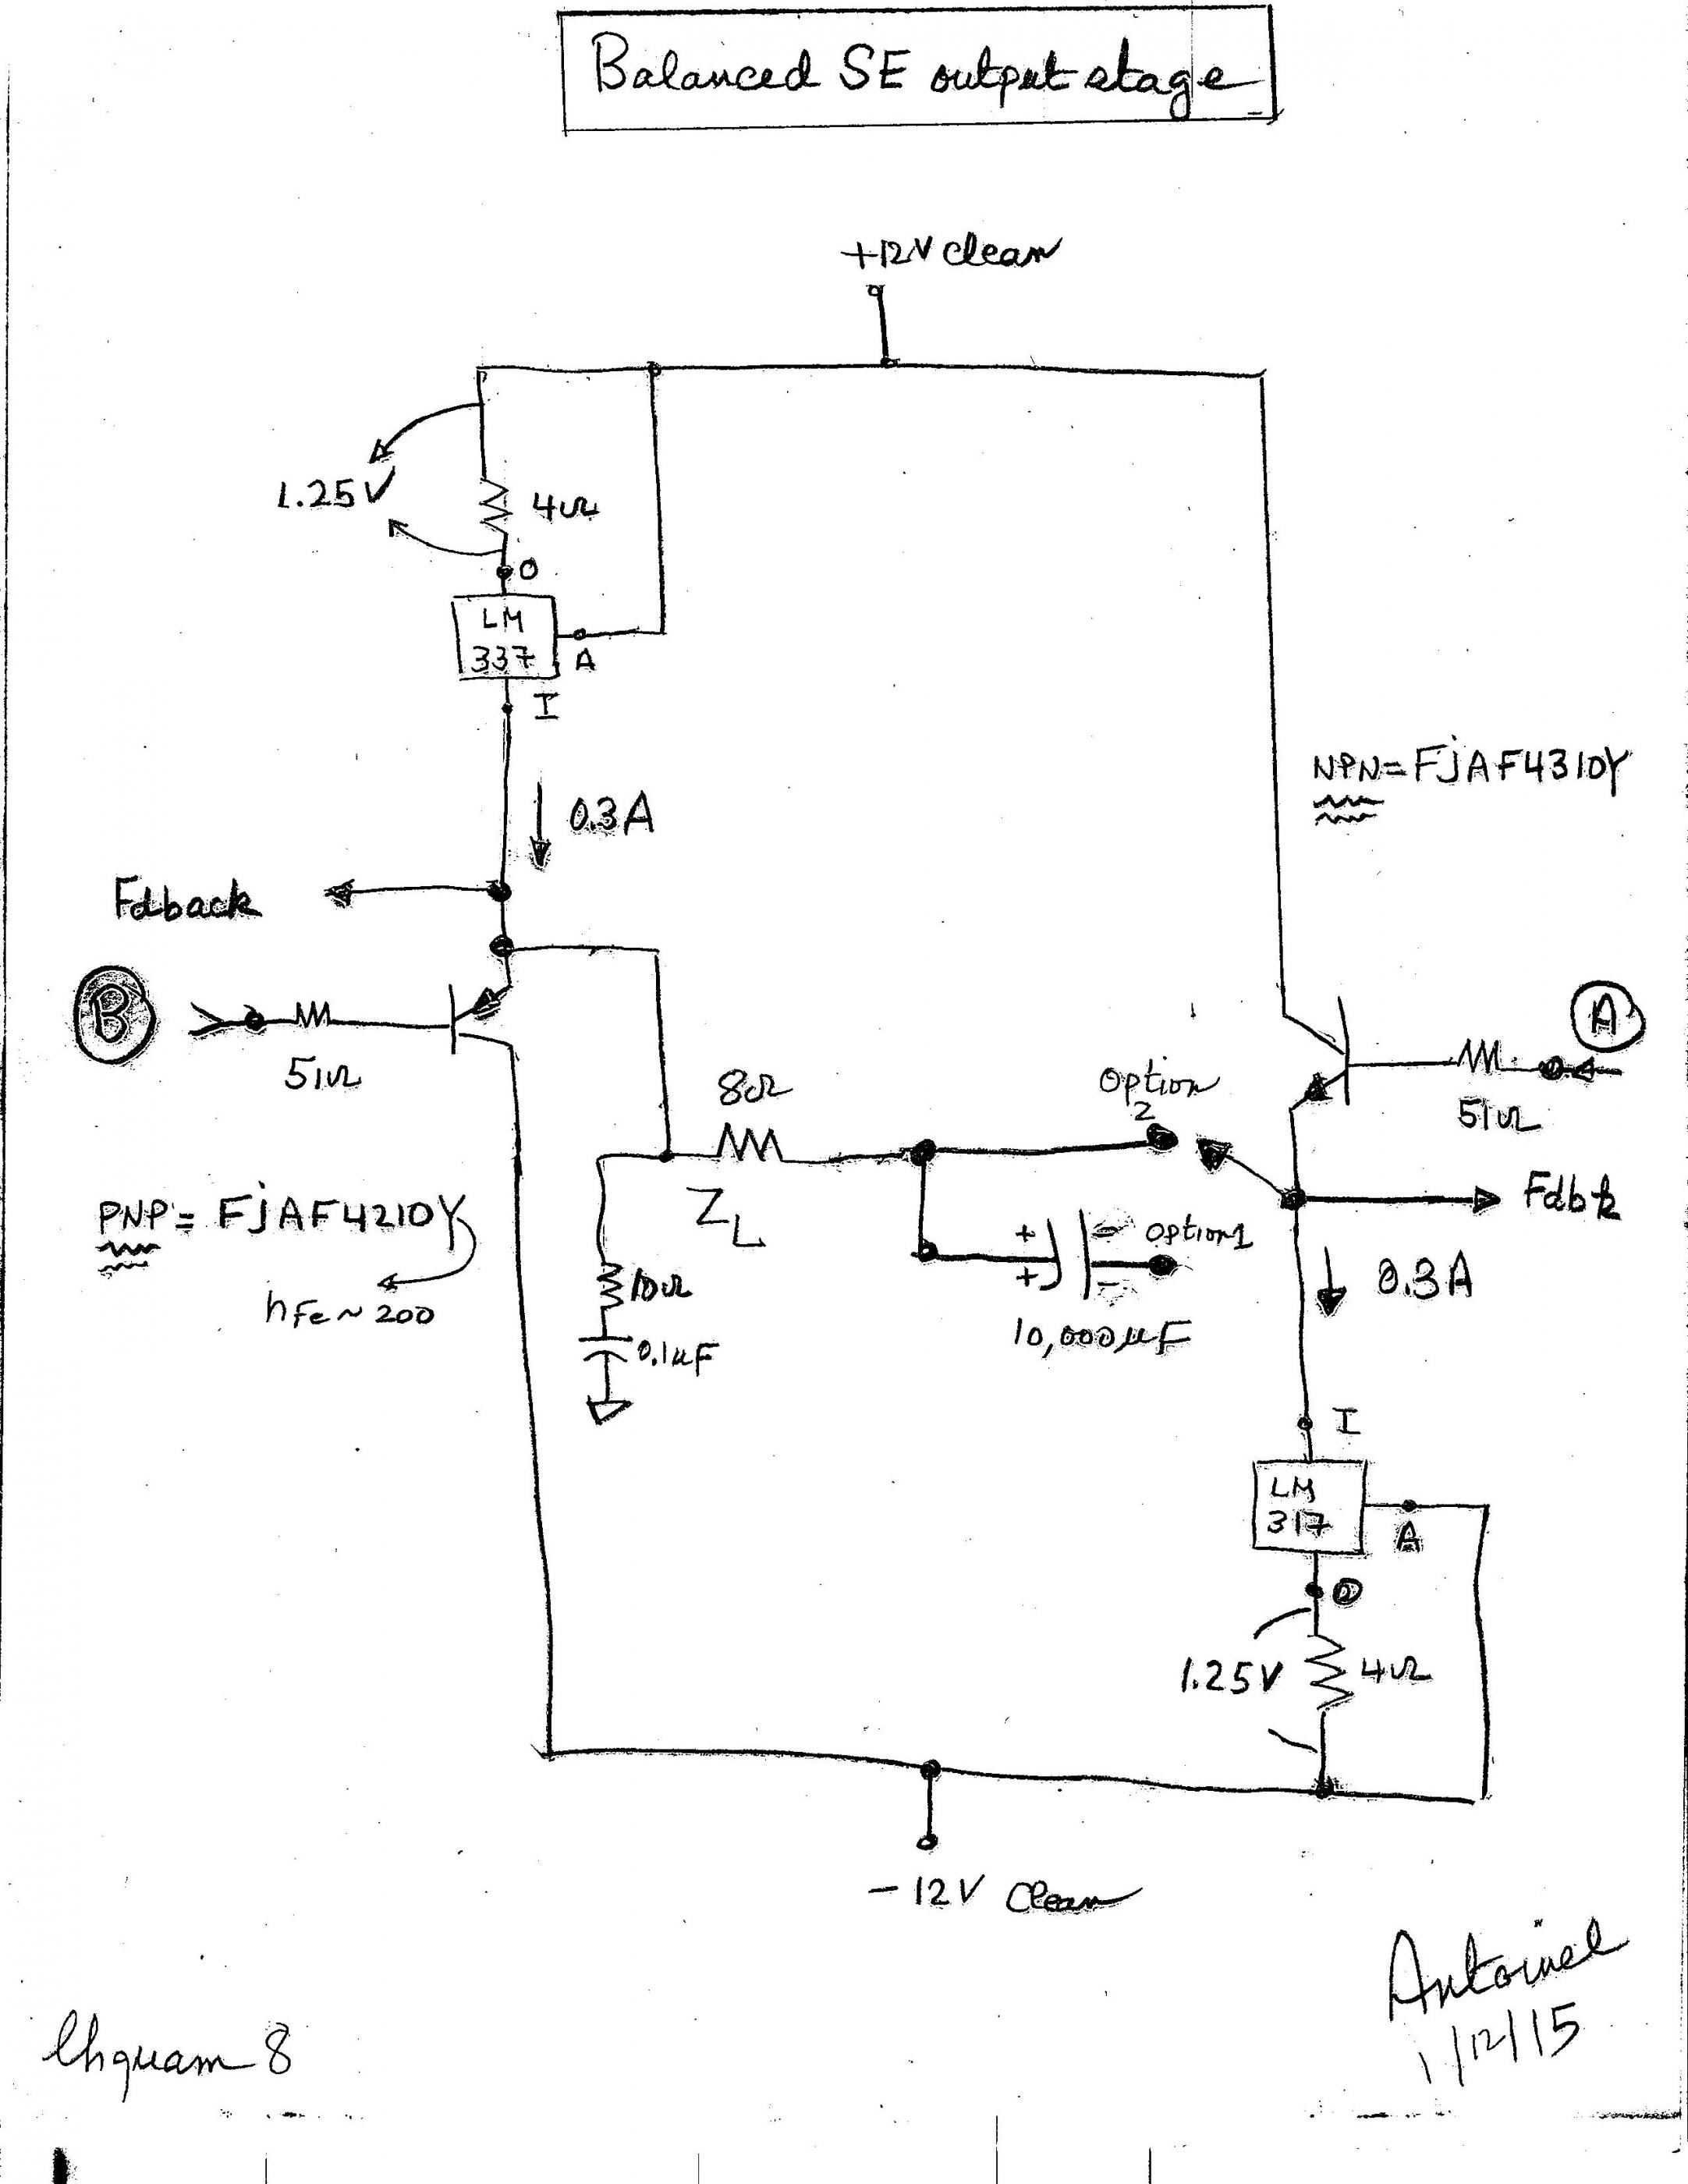 Balanced SE output stage
+12V clean
1.25V
4Ω
O
LM
337
A
I
0.3A
NPN = FJAF4310Y
Fdback
B
51Ω
A
51Ω
8Ω
Option
2
Fdbk
PNP = FJAF4210Y
ZL
hFe ~ 200
10Ω
0.1uF
+
+
-
-
Option1
10,000uF
0.3A
I
LM
317
A
O
1.25V
4Ω
-12V Clean
Antoinel
1/12/15
8